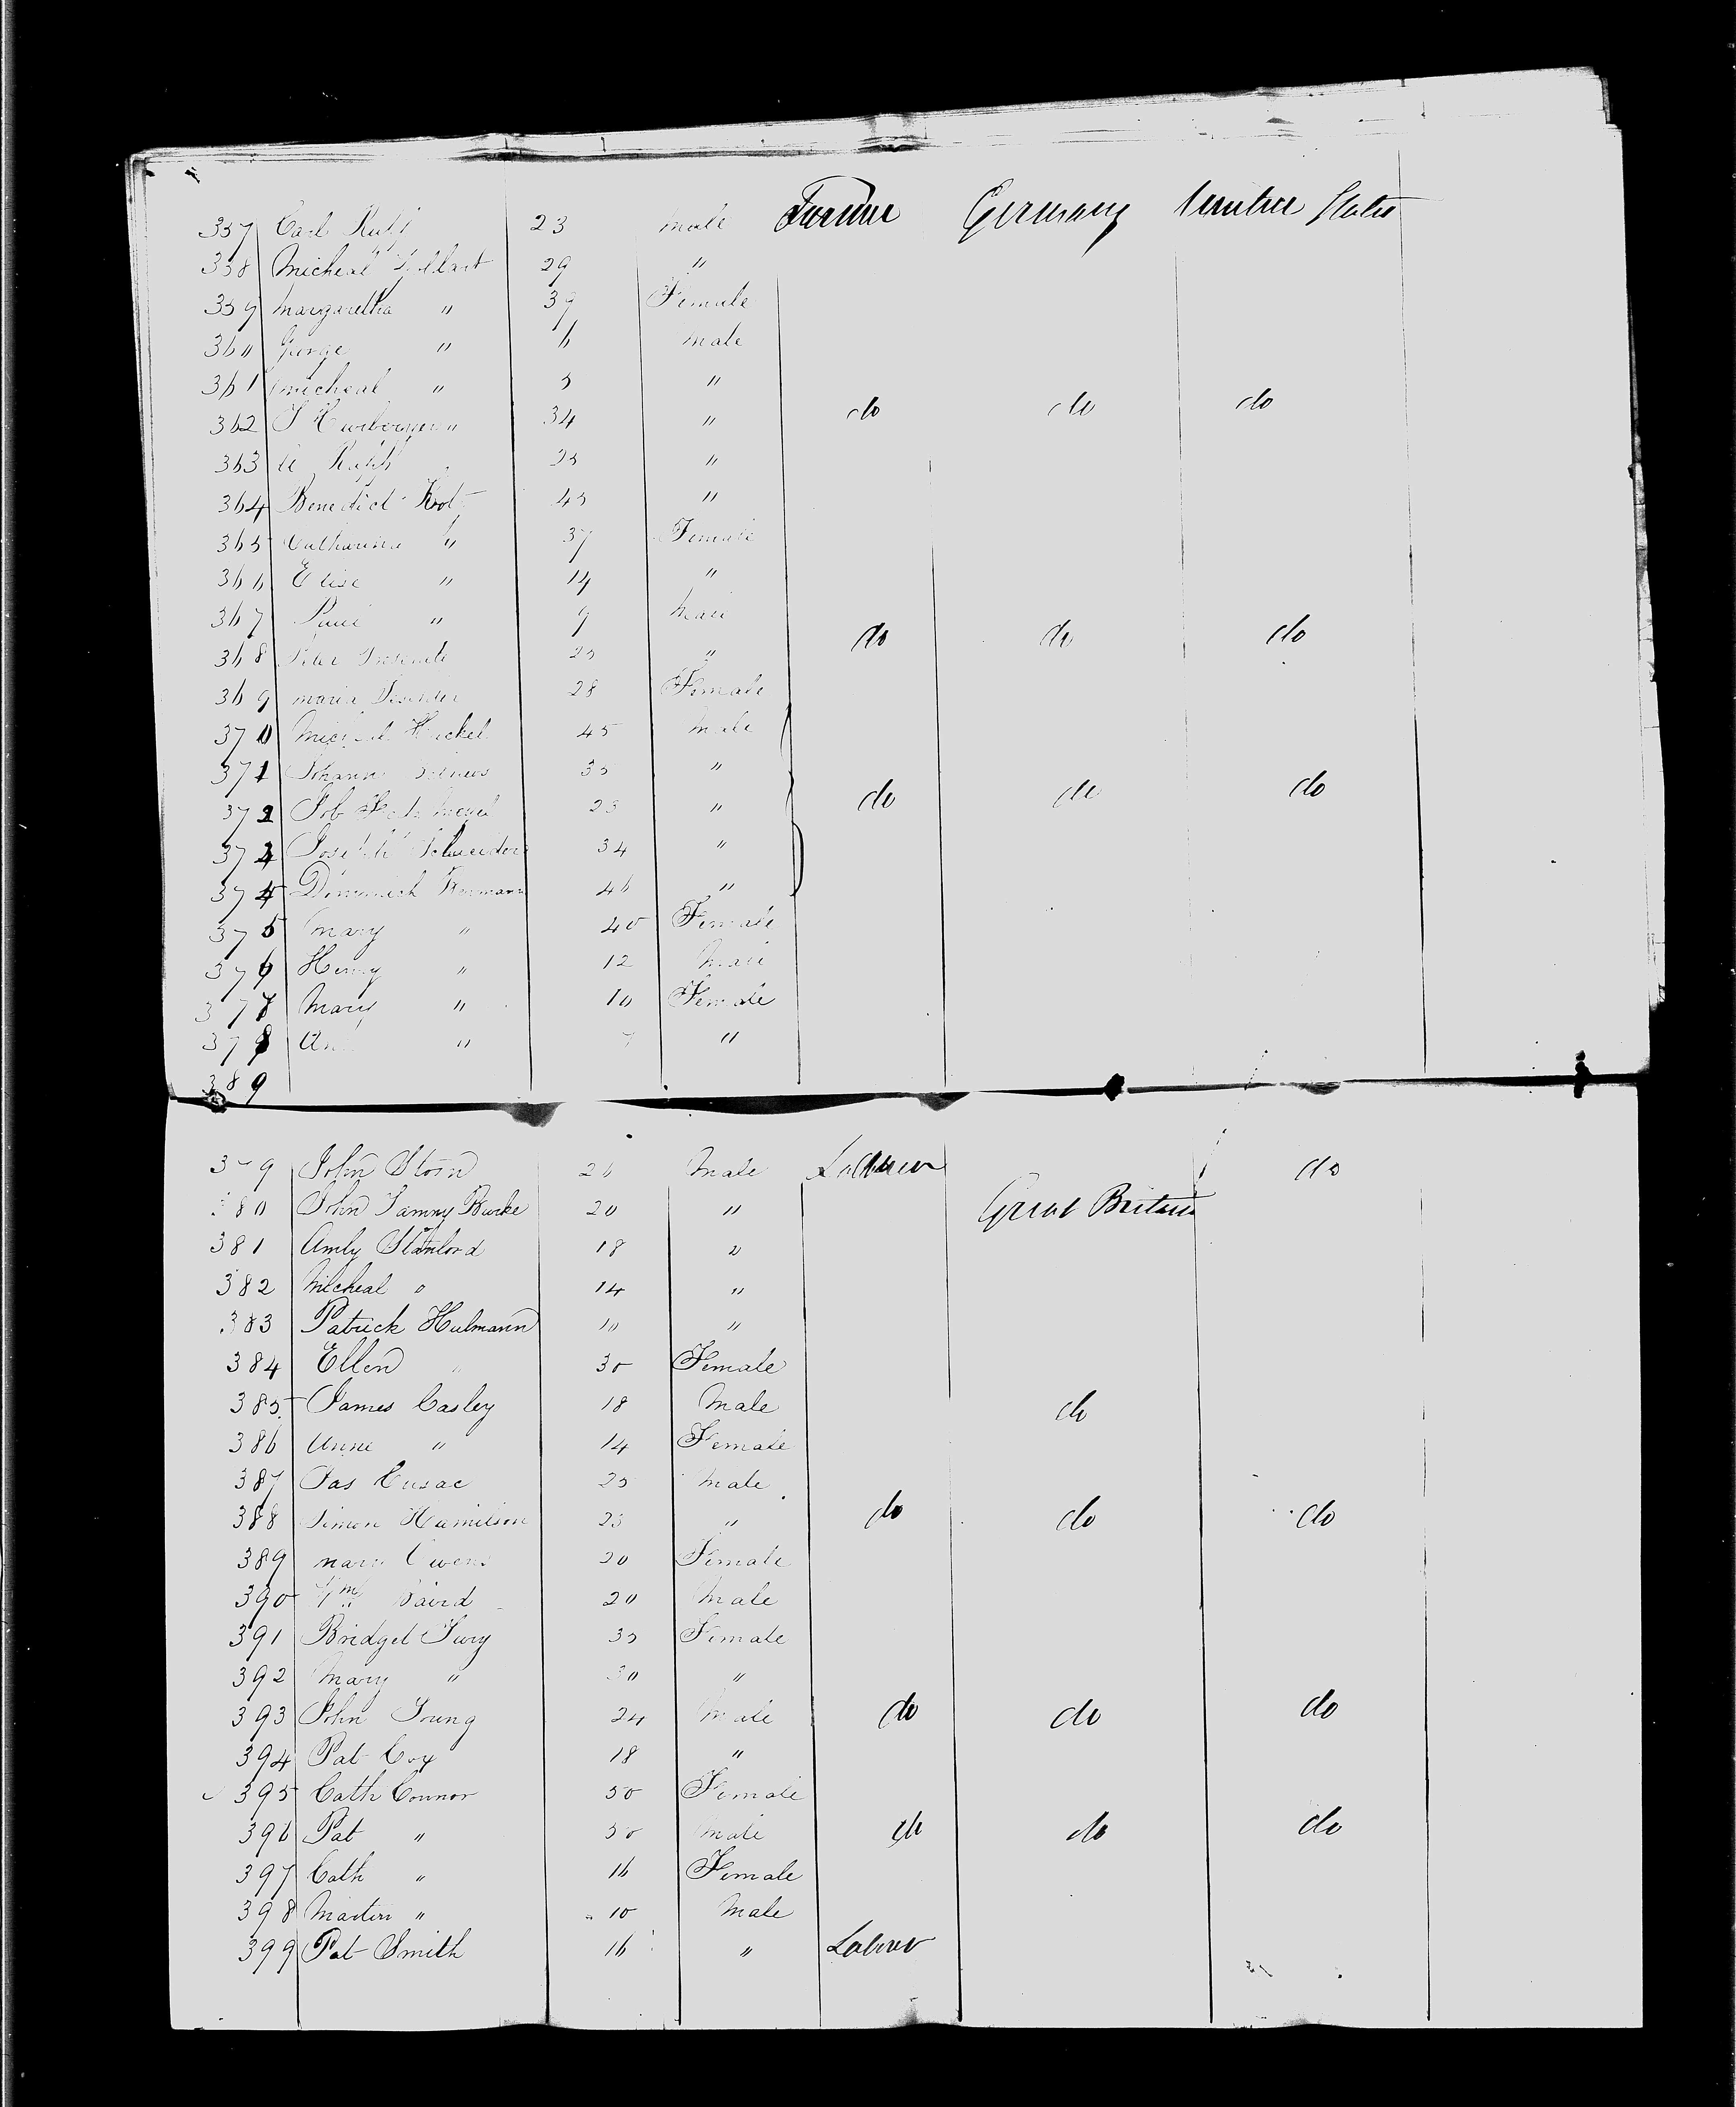 357 Carl Rapp 23 male Farmer Germany United States
358 Micheal 29 "
359 Margaretha " 39 Female
360 George " 6 male
361 Micheal " 5 "
362 " 34 " do do do
363 Rapp 25 "
364 Benedict 45 "
365 Catharina " 37 Female
366 Elise " 14 "
367 " 9 Male
368 25 " do do do
369 Maria 28 Female
370 Micheal Heckel 45 male
371 Johann 35 "
372 Job 23 " do do do
373 Joseph Schneider 34 "
374 Dominich 46 "
375 Mary " 40 Female
376 Henry " 12 Male
377 Mary " 10 Female
378 " 7 "
389
379 John 26 Male Labourer do
380 John Tammy Burke 20 " Great Britain
381 Amly 18 "
382 Micheal " 14 "
383 Patrick Hulmann 10 "
384 Ellen " 30 Female
385 James Casley 18 Male do
386 Anne " 14 Female
387 Jas Cusac 25 Male
388 Simon Hamilson 25 " do do do
389 Mary Owens 20 Female
390 Wm Baird 20 Male
391 Bridget 35 Female
392 Mary " 30 "
393 John Young 24 Male do do do
394 Pat Cox 18 "
395 Cath Connor 50 Female
396 Pat " 50 Male do do do
397 Cath " 16 Female
398 Martin " 10 Male
399 Pat Smith 16 " Labrer